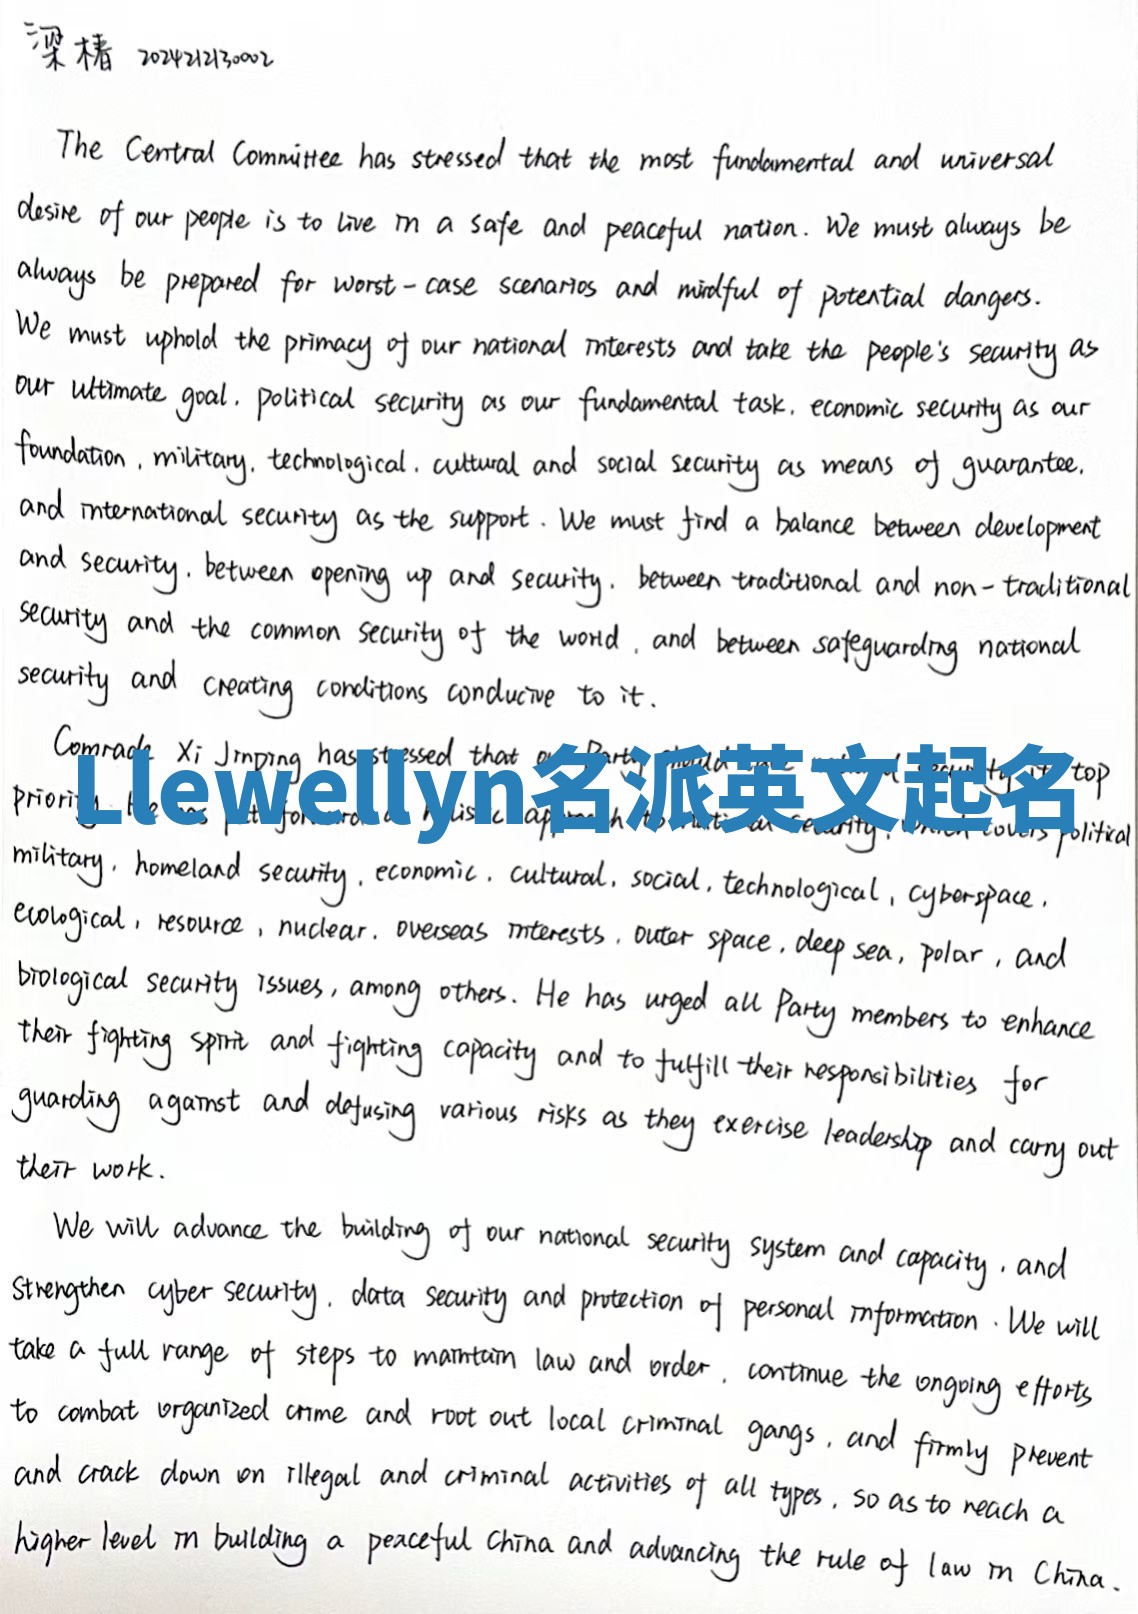 梁椿 2024212130002
The Central Committee has stressed that the most fundamental and universal
desire of our people is to live in a safe and peaceful nation. We must always be
always be prepared for worst-case scenarios and mindful of potential dangers.
We must uphold the primacy of our national interests and take the people's security as
our ultimate goal, political security as our fundamental task, economic security as our
foundation, military, technological, cultural and social security as means of guarantee,
and international security as the support. We must find a balance between development
and security, between opening up and security, between traditional and non-traditional
security and the common security of the world, and between safeguarding national
security and creating conditions conducive to it.
Comrade Xi Jinping has stressed that our Party should national security its top
Llewellyn名派英文起名
priority. He has put forward a holistic approach to national security, which covers political
military, homeland security, economic, cultural, social, technological, cyberspace,
ecological, resource, nuclear, overseas interests, outer space, deep sea, polar, and
biological security issues, among others. He has urged all Party members to enhance
their fighting spirit and fighting capacity and to fulfill their responsibilities for
guarding against and defusing various risks as they exercise leadership and carry out
their work.
We will advance the building of our national security system and capacity, and
strengthen cyber security, data security and protection of personal information. We will
take a full range of steps to maintain law and order, continue the ongoing efforts
to combat organized crime and root out local criminal gangs, and firmly prevent
and crack down on illegal and criminal activities of all types, so as to reach a
higher level in building a peaceful China and advancing the rule of law in China.